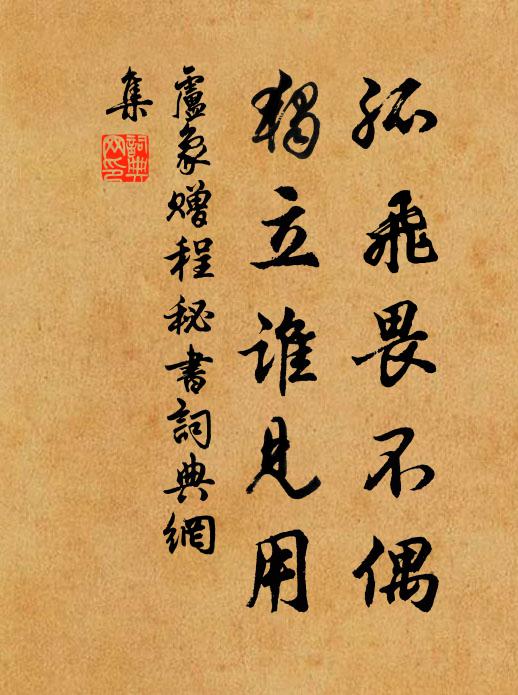 孤飛畏不偶
獨立誰見用
盧象贈程秘書詞典網
集
詞典
網印